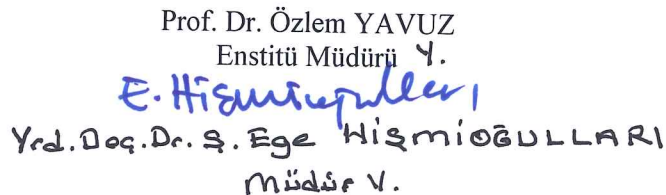 Prof. Dr. Özlem YAVUZ
Enstitü Müdürü Y.
E. Hişmioğulları
Yrd. Doç. Dr. Ş. Ege HİŞMİOĞULLARI
Müdür V.